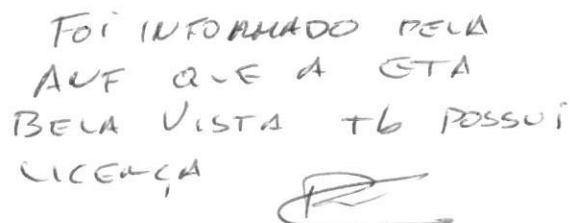 FOI INFORMADO PELA
ANF QUE A ETA
BELA VISTA tb POSSUI
LICENÇA